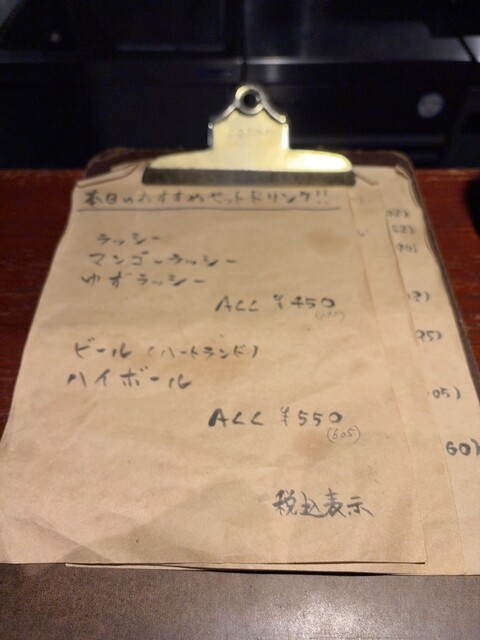 本日のおすすめセットドリンク!!
ラッシー
マンゴーラッシー
ゆずラッシー
ALL ¥450
(495)
ビール (ハートランド)
ハイボール
ALL ¥550
(605)
税込表示
05)
60)